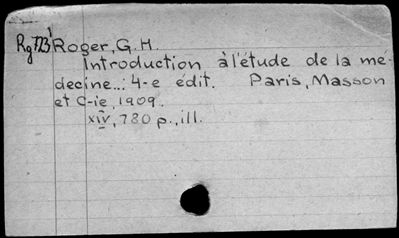 Rg723¹ Roger, G.H.
Introduction à l'étude de la mé-
decine...: 4-e édit. Paris, Masson
et C-ie, 1909.
xiv, 780 p., ill.